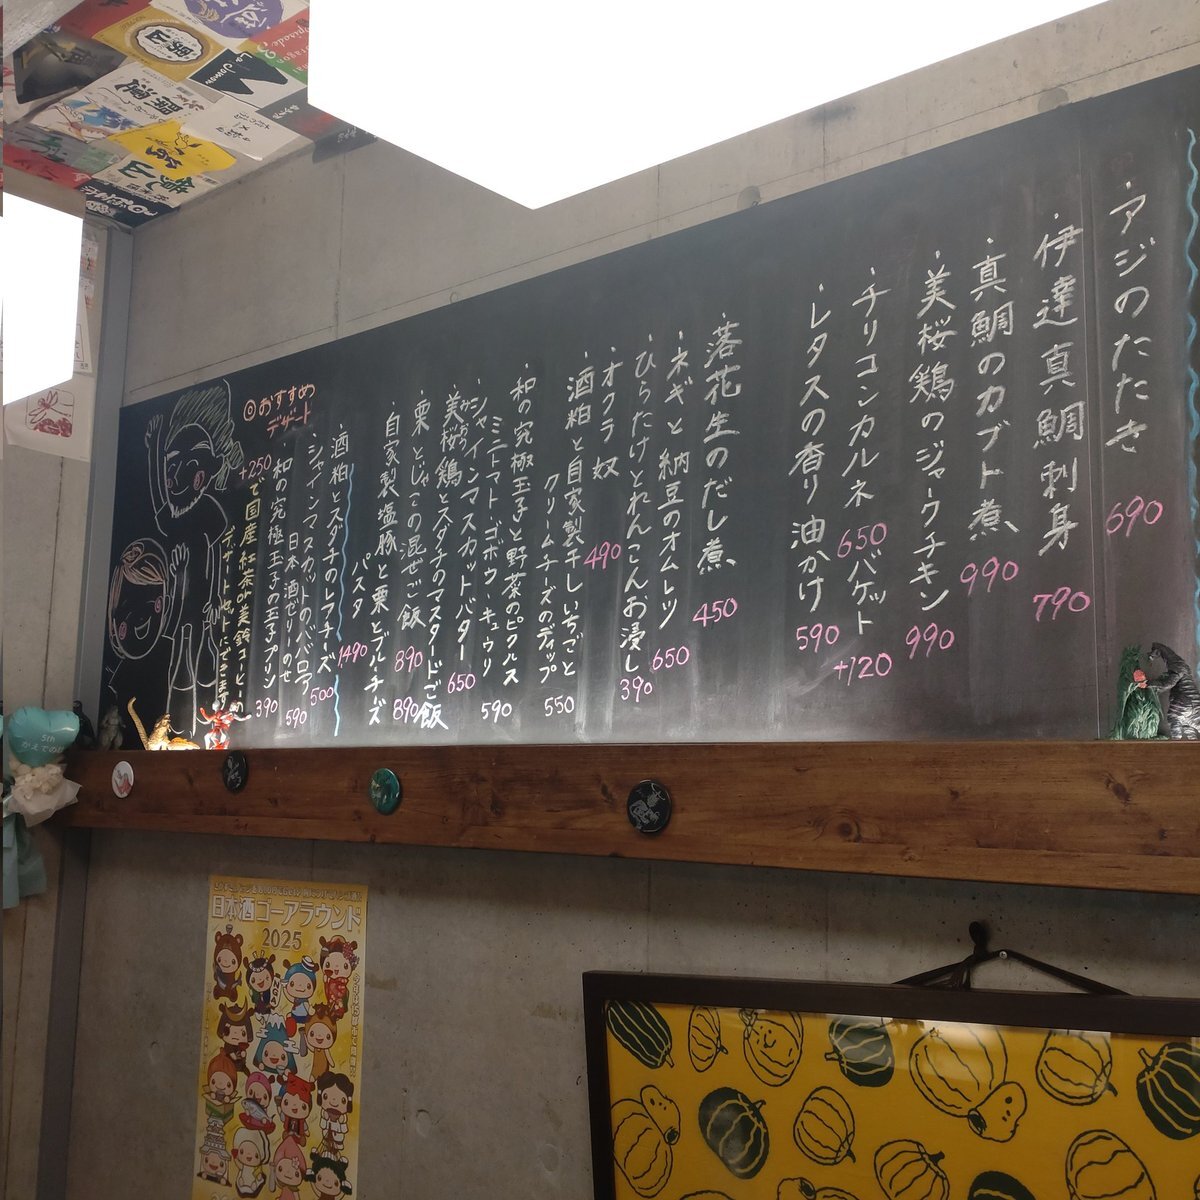 ・アジのたたき 690
・伊達真鯛刺身 790
・真鯛のカブト煮 990
・美桜鶏のジャークチキン 990
・チリコンカルネ 650 バゲット +120
・レタスの香り油かけ 590
・落花生のだし煮 450
・ネギと納豆のオムレツ 650
・ひらたけとれんこんお浸し 390
・オクラ奴 490
・酒粕と自家製干しいちごと
クリームチーズのディップ 550
・和の究極玉子と野菜のピクルス
ミニトマト・ゴボウ・キュウリ 590
・シャインマスカットバター 650
・美桜鶏とスダチのマスタードご飯 890
・栗とじゃこの混ぜご飯 890
・自家製塩豚と栗とブルーチーズ
パスタ 1490
◎おすすめ
デザート
・酒粕とスダチのレアチーズ 500
・シャインマスカットのババロア
日本酒ゼリーのせ 590
・和の究極玉子の玉子プリン 390
+250で国産紅茶or美鈴コーヒーの
デザートセットにできます
5th
日本酒ゴーアラウンド
2025